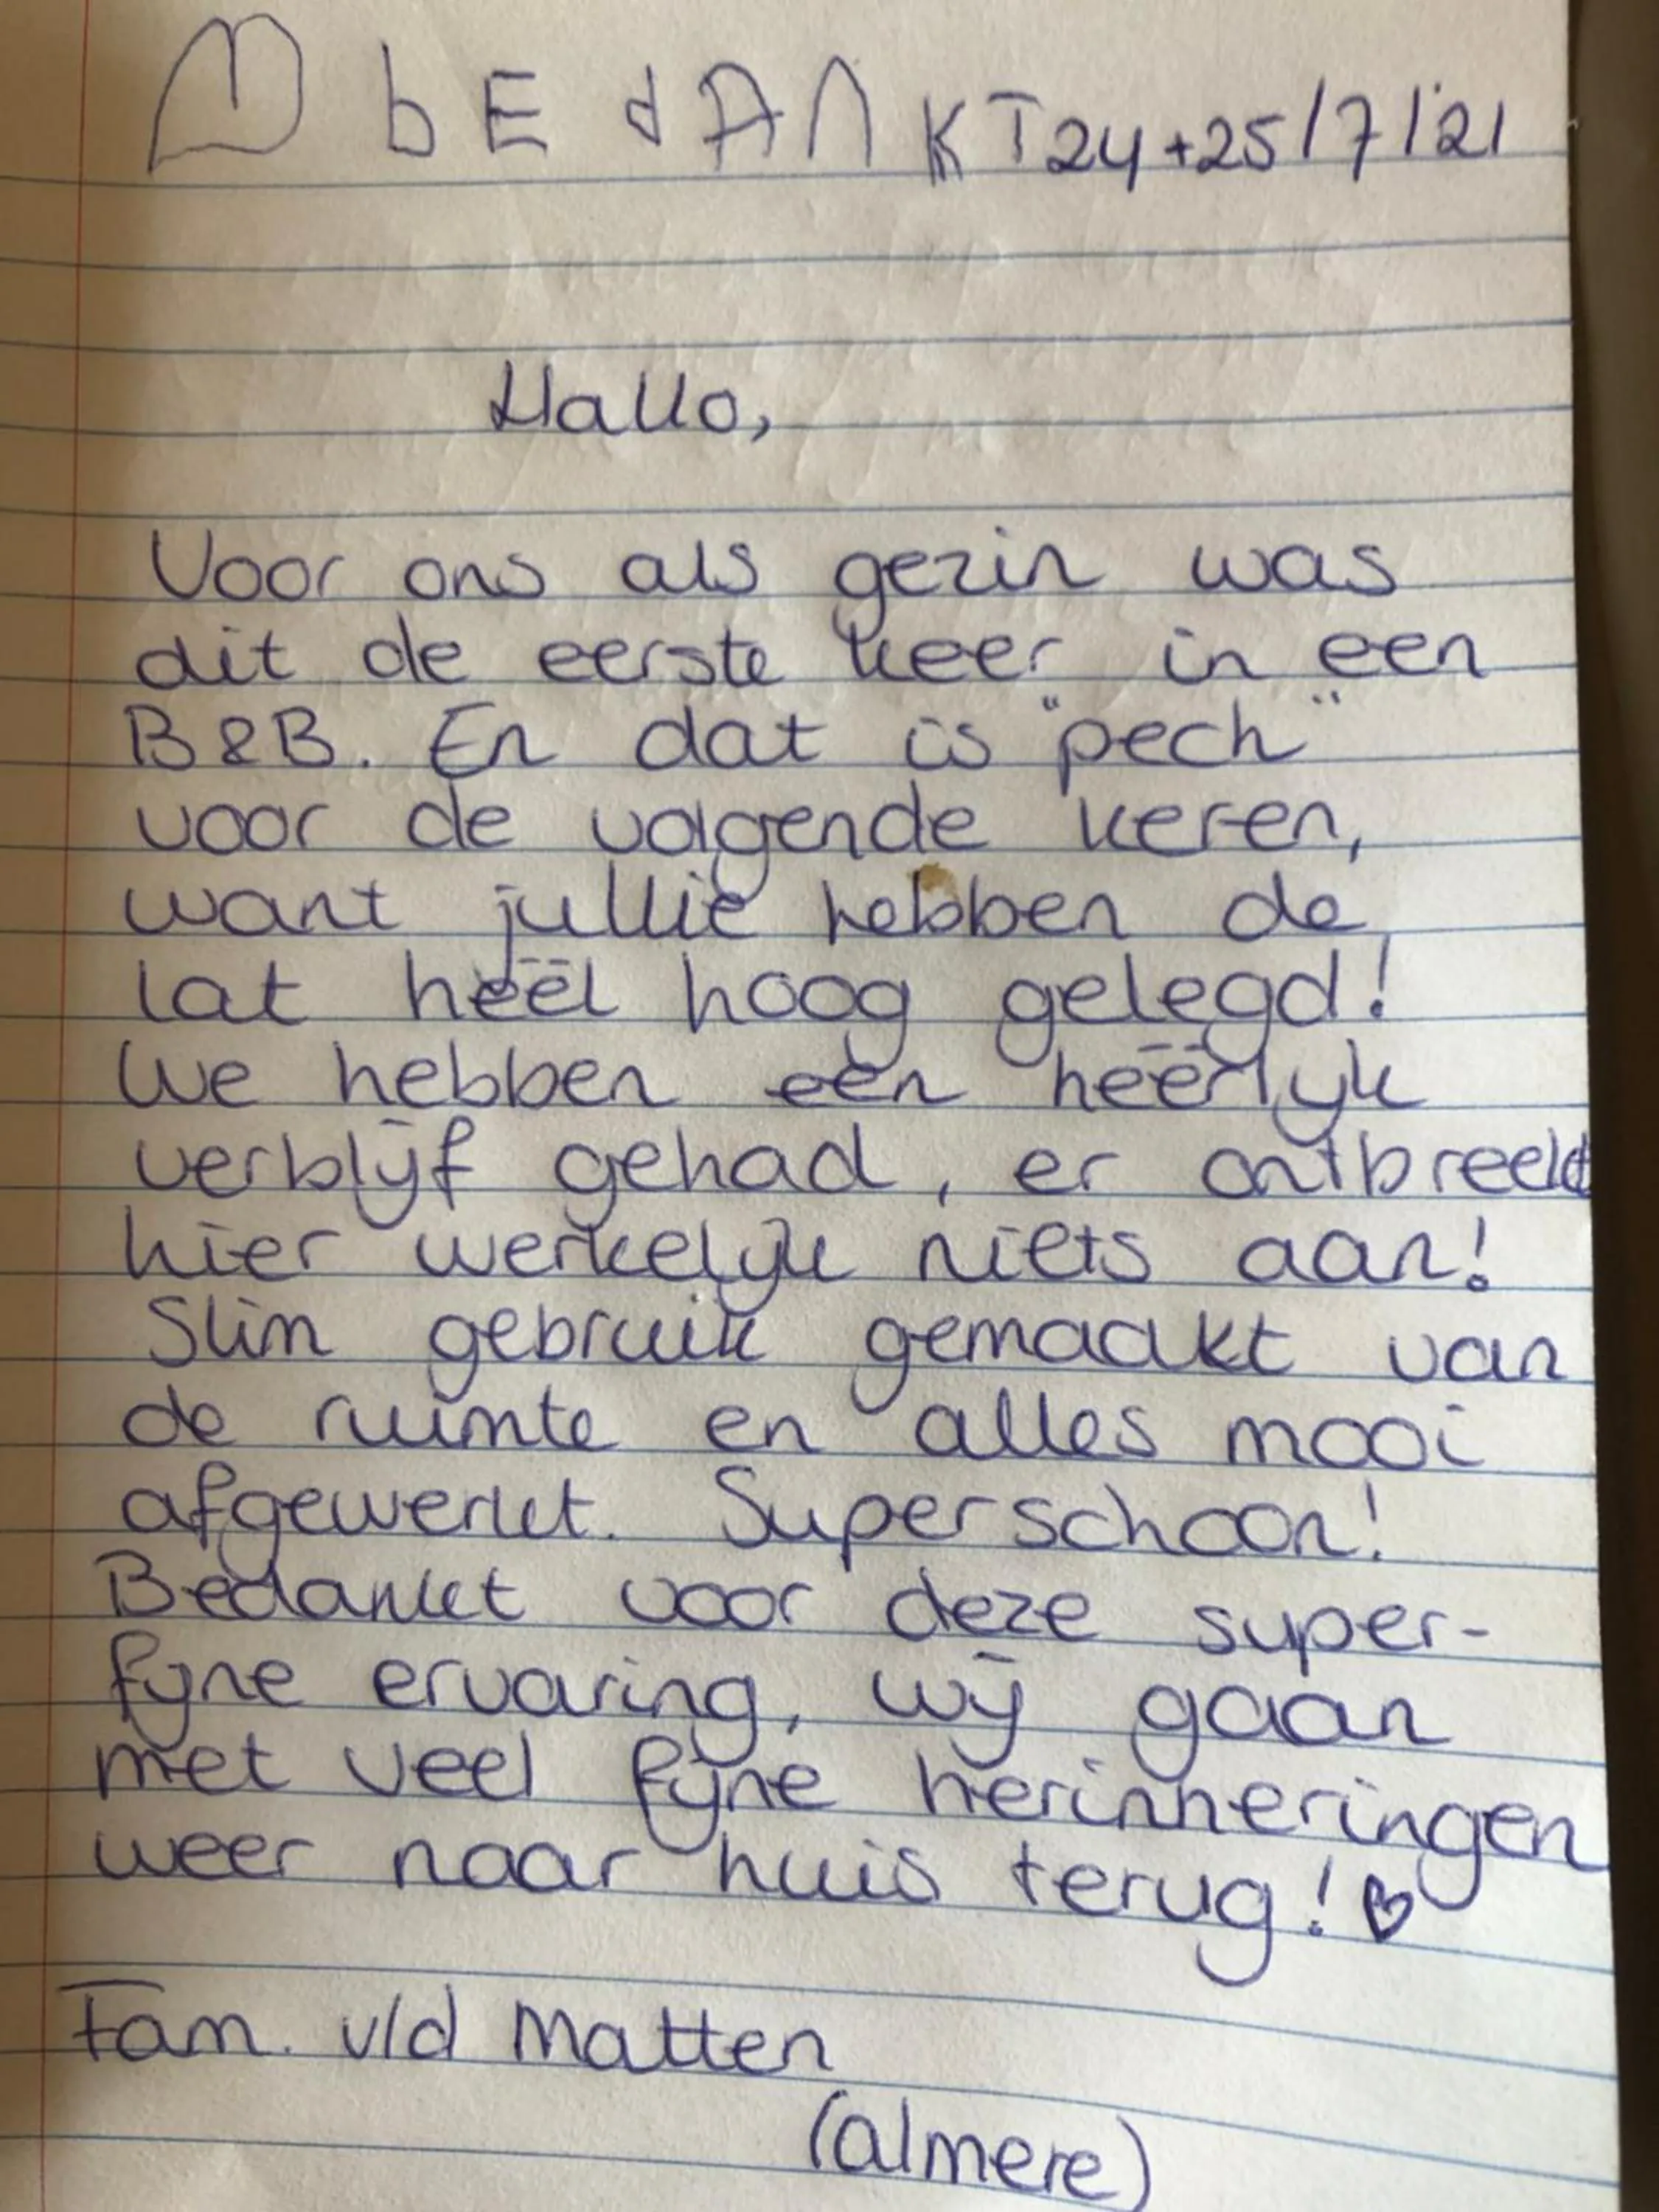 bEdANKT 24+25/7/'21
Hallo,
Voor ons als gezin was
dit de eerste keer in een
B&B. En dat is "pech"
voor de volgende keren,
want jullie hebben de
lat heel hoog gelegd!
We hebben een heerlijk
verblijf gehad, er ontbreekt
hier werkelijk niets aan!
Slim gebruik gemaakt van
de ruimte en alles mooi
afgewerkt. Superschoon!
Bedankt voor deze super-
fijne ervaring, wij gaan
met veel fijne herinneringen
weer naar huis terug! ♡
Fam. v/d Matten
(Almere)